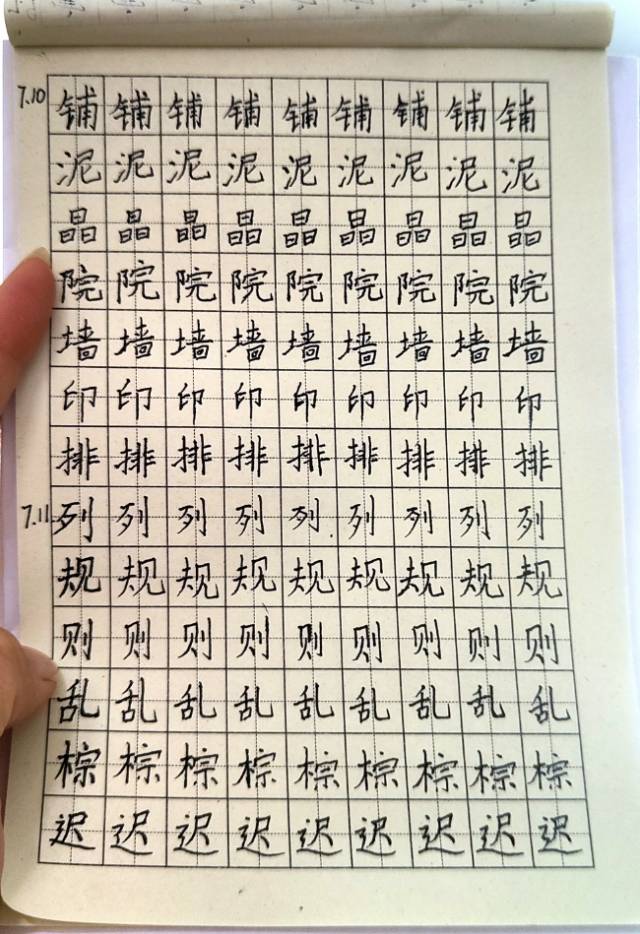 7.10 铺铺铺铺铺铺铺铺铺
泥泥泥泥泥泥泥泥泥
晶晶晶晶晶晶晶晶晶
院院院院院院院院院
墙墙墙墙墙墙墙墙墙
印印印印印印印印印
排排排排排排排排排
7.11 列列列列列列列列列
规规规规规规规规规
则则则则则则则则则
乱乱乱乱乱乱乱乱乱
棕棕棕棕棕棕棕棕棕
迟迟迟迟迟迟迟迟迟